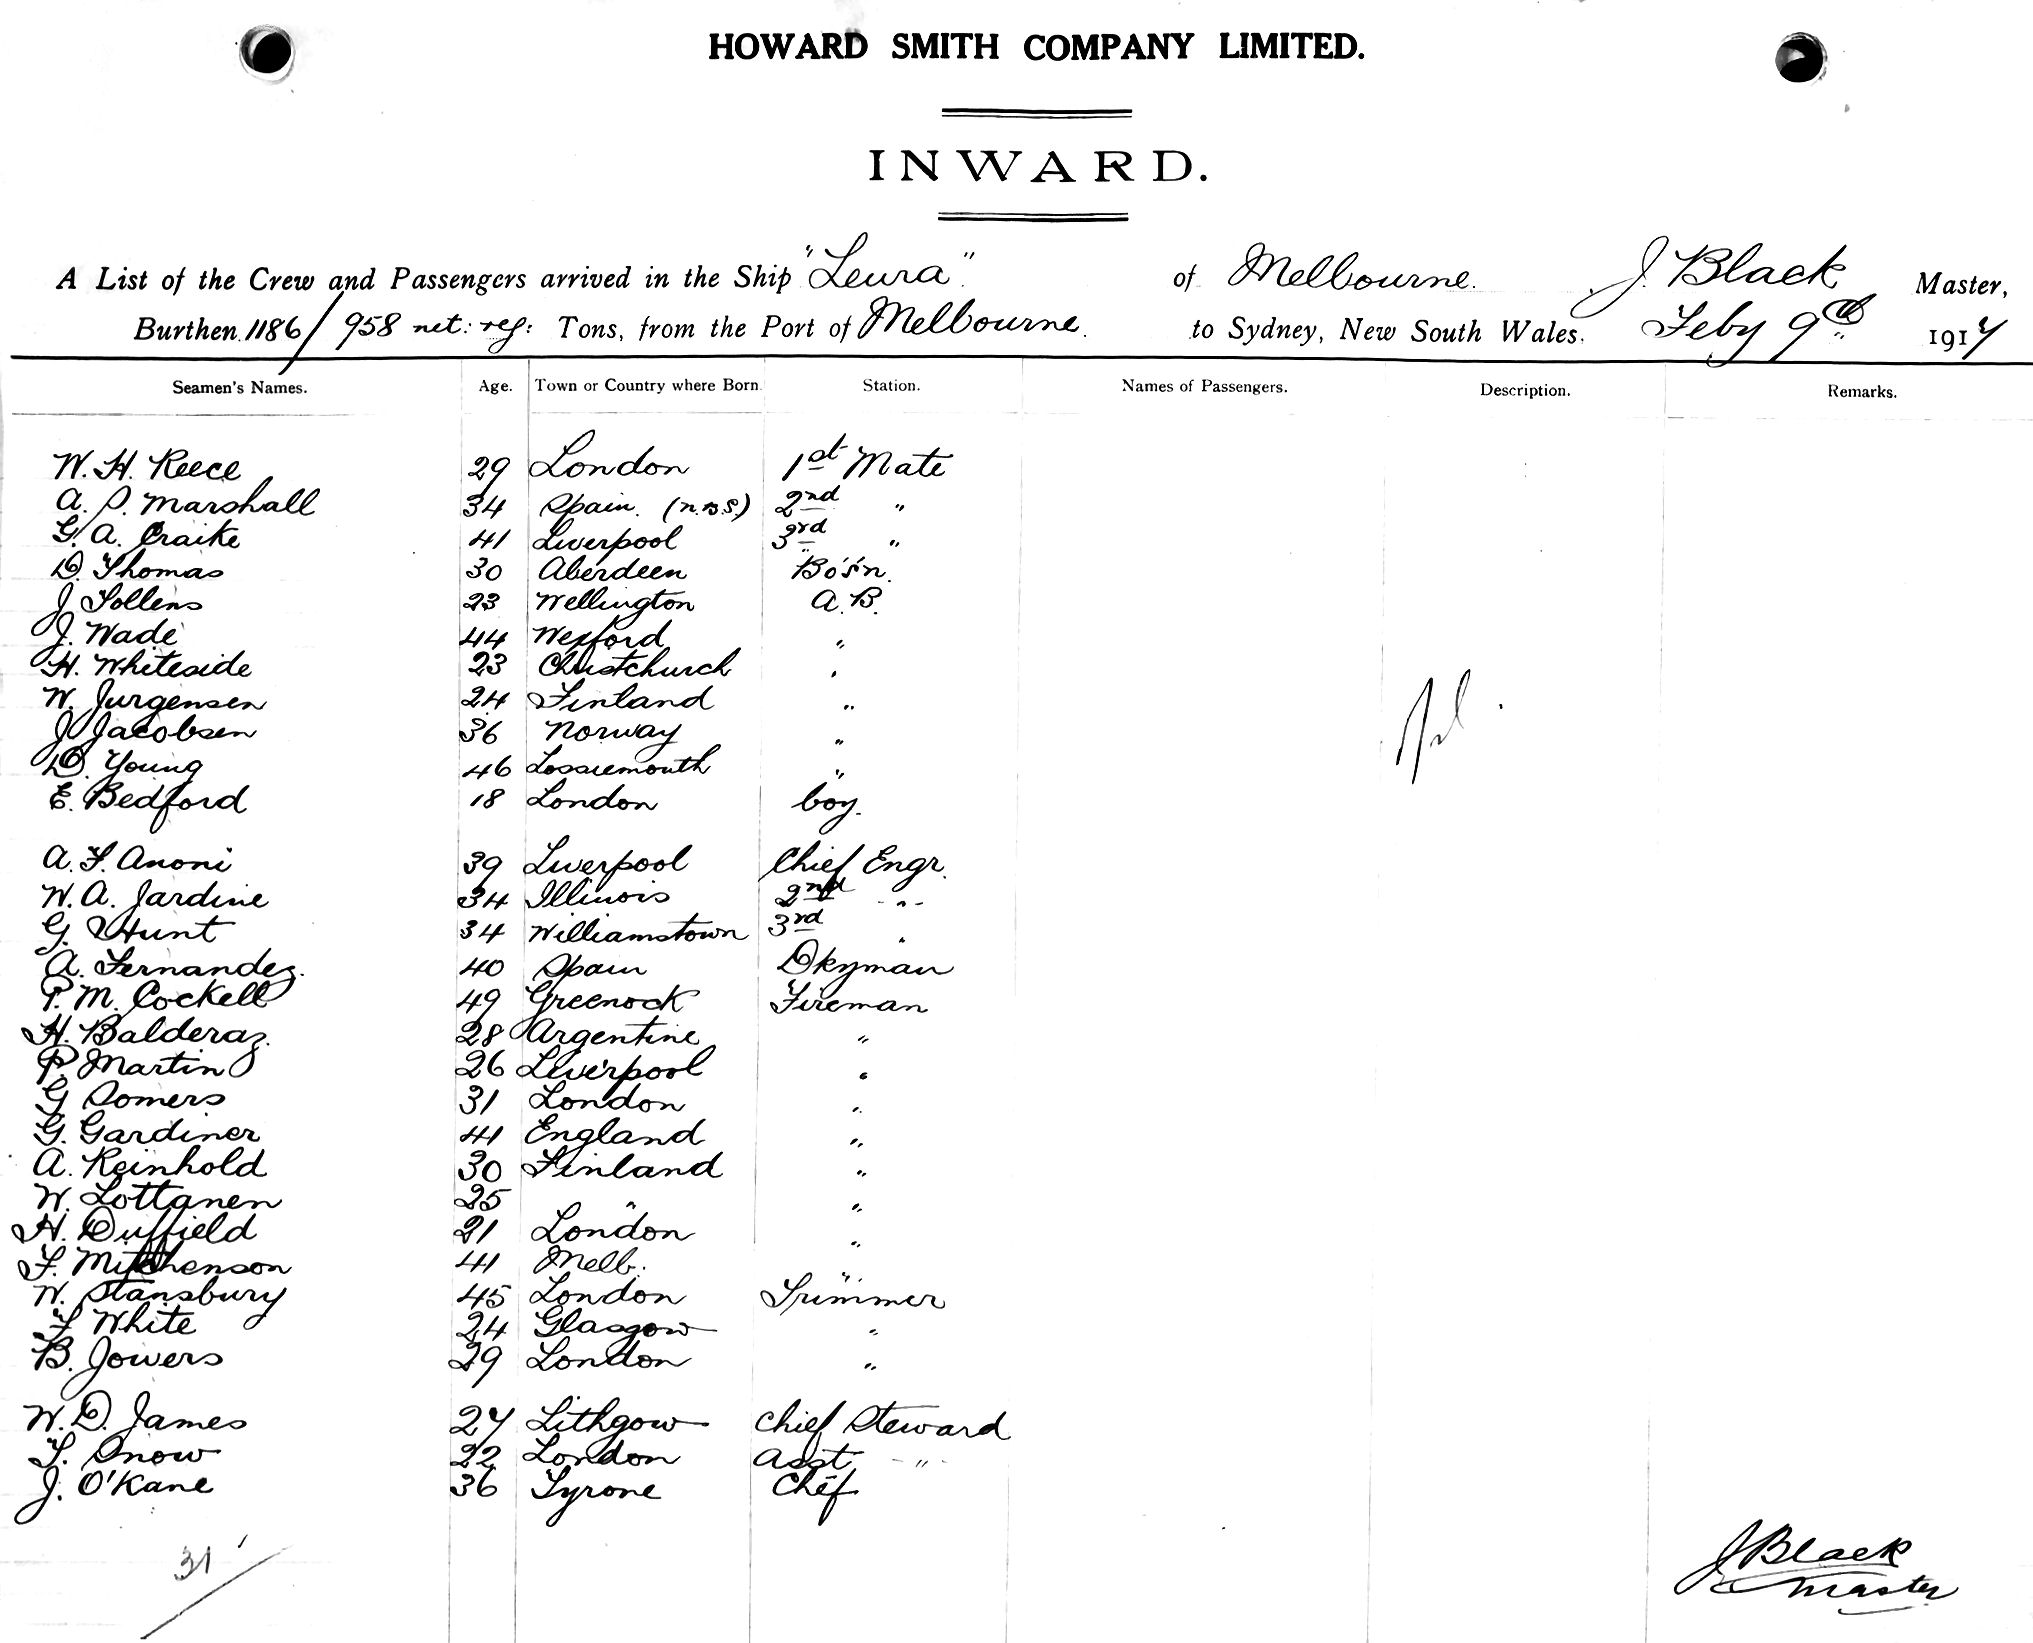 HOWARD SMITH COMPANY LIMITED.
INWARD.
A List of the Crew and Passengers arrived in the Ship "Leura" of Melbourne. J. Black Master,
Burthen 1186/958 net: reg: Tons, from the Port of Melbourne. to Sydney, New South Wales. Feby 9th 1917
Seamen's Names. Age. Town or Country where Born. Station. Names of Passengers. Description. Remarks.
W. H. Reece 29 London 1st Mate
A. S. Marshall 34 Spain. (n.B.S.) 2nd "
G. A. Craike 41 Liverpool 3rd "
D. Thomas 30 Aberdeen Bo's'n.
J. Tollens 23 Wellington A.B.
J. Wade 44 Wexford "
H. Whiteside 23 Christchurch "
W. Jurgensen 24 Finland "
J. Jacobsen 36 Norway "
D. Young 46 Lossiemouth "
E. Bedford 18 London boy.
A. F. Anoni 39 Liverpool Chief Engr.
W. A. Jardine 34 Illinois 2nd "
G. Hunt 34 Williamstown 3rd "
A. Fernandez. 40 Spain Dkyman
P. M. Cockell 49 Greenock Fireman
H. Balderaz. 28 Argentine "
P. Martin 26 Liverpool "
G Somers 31 London "
G. Gardiner 41 England "
A. Reinhold 30 Finland "
W. Lottanen 25 " "
H. Duffield 21 London "
F. Mitchenson 41 Melb. "
W. Stansbury 45 London Trimmer
F White 24 Glasgow "
B. Jowers 29 London "
W. D. James 27 Lithgow Chief Steward
T. Snow 22 London Asst "
J. O'Kane 36 Tyrone Chef
31
J Black
Master